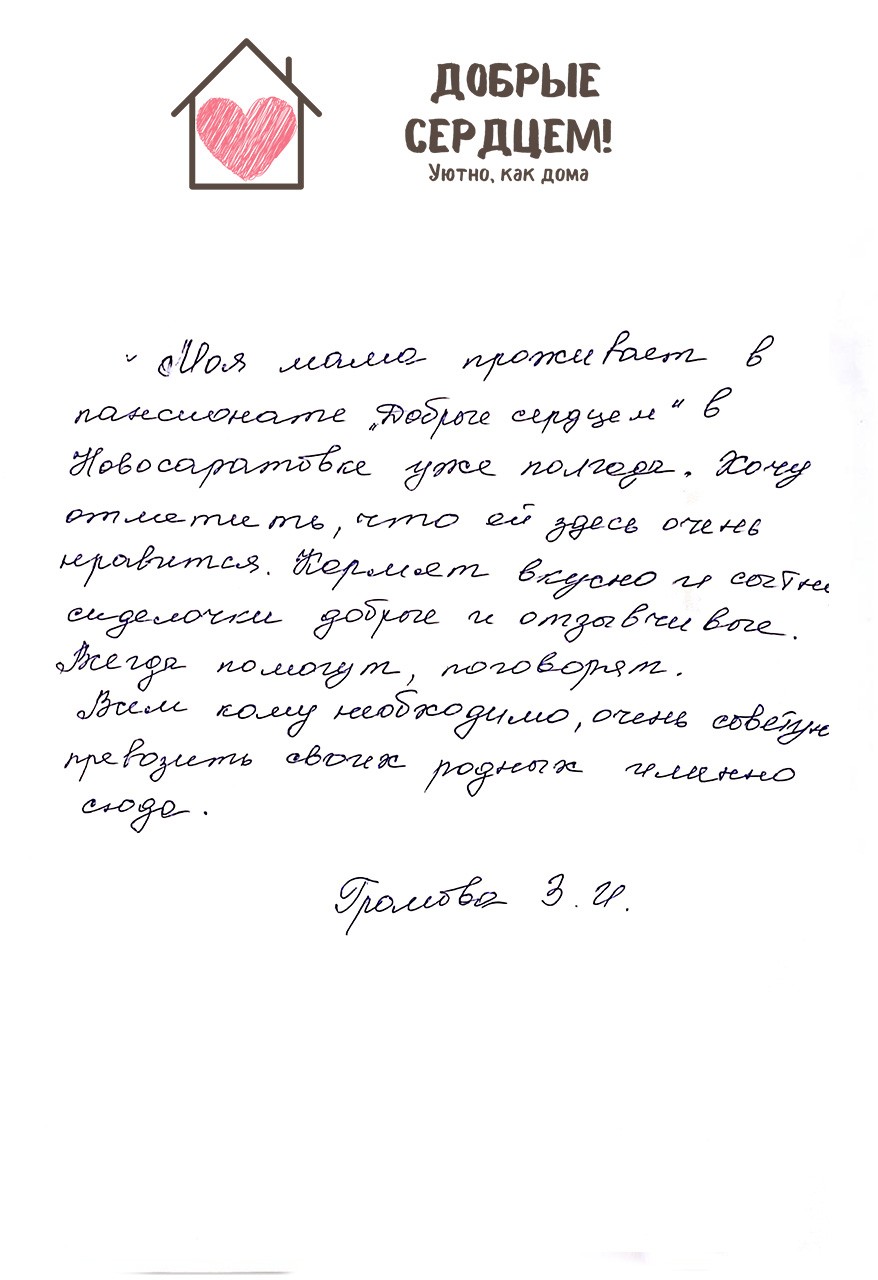 ДОБРЫЕ
СЕРДЦЕМ!
Уютно, как дома
Моя мама проживает в
пансионате „Добрые сердцем“ в
Новосаратовке уже полгода. Хочу
отметить, что ей здесь очень
нравится. Кормят вкусно и сытно
сиделочки добрые и отзывчивые.
Всегда помогут, поговорят.
Всем кому необходимо, очень советую
превозить своих родных именно
сюда.
Громова З. И.